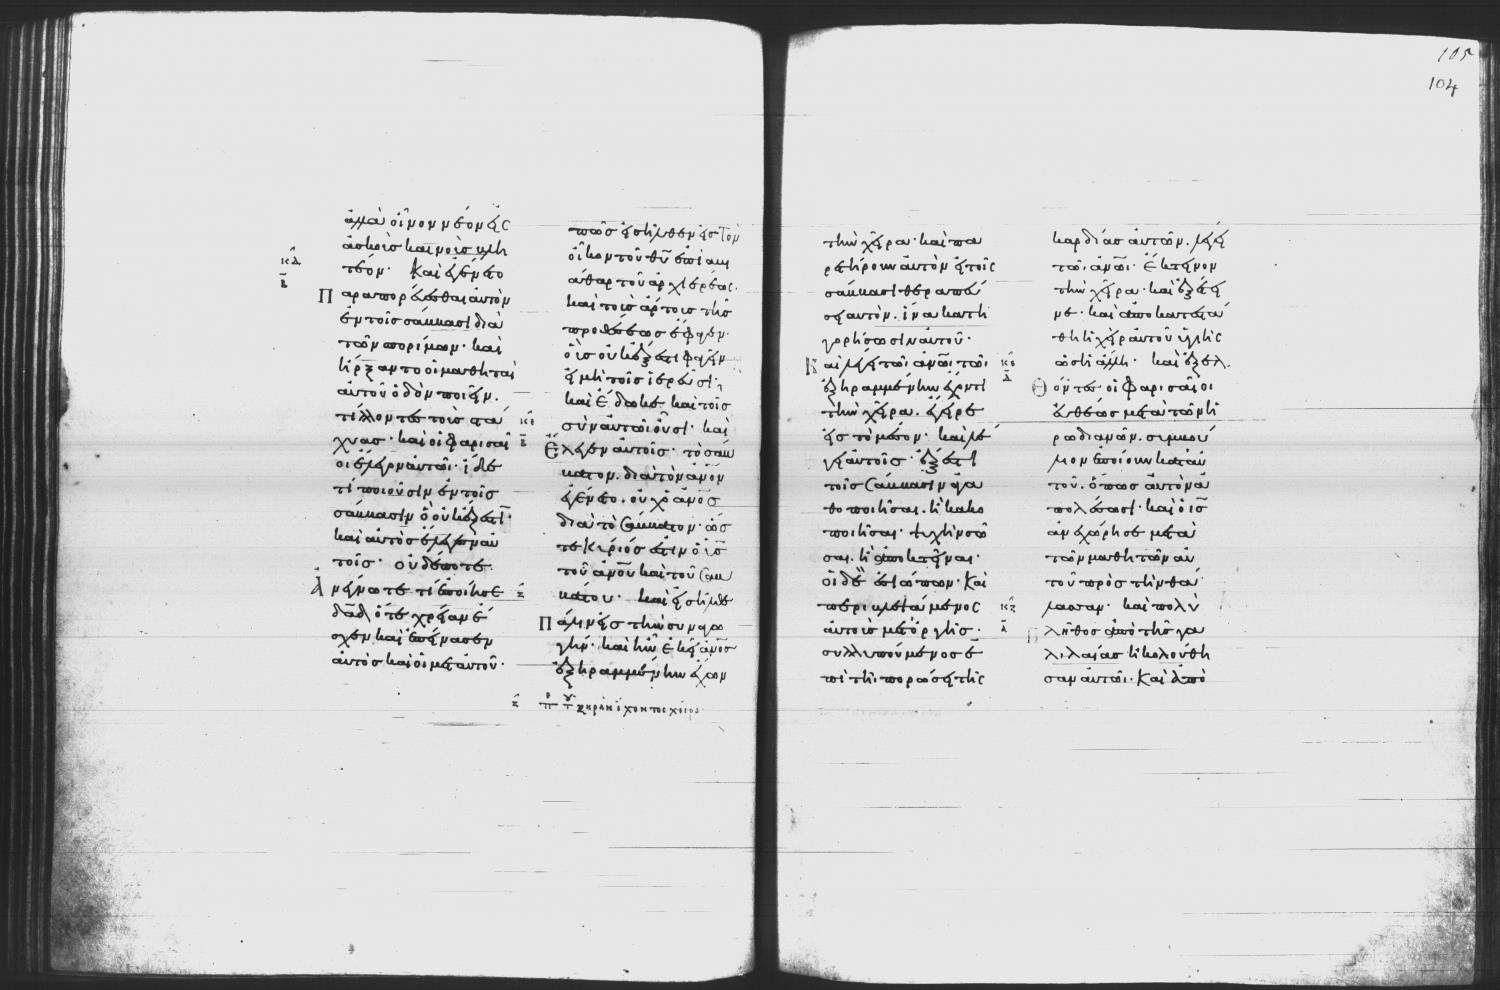 ἀλλὰ οἶνον νέον εἰς
ἀσκοὺς καινοὺς βλη
τέον· Καὶ ἐγένετο
παραπορεύεσθαι αὐτὸν
ἐν τοῖς σάββασι διὰ
τῶν σπορίμων· καὶ
ἤρξαντο οἱ μαθηταὶ
αὐτοῦ ὁδὸν ποιεῖν.
τίλλοντες τοὺς στά
χυας· καὶ οἱ φαρισαῖ
οι ἔλεγον αὐτῶι· ἴδε
τί ποιοῦσιν ἐν τοῖς
σάββασιν ὃ οὐκ ἔξεστι·
καὶ αὐτὸς ἔλεγεν αὐ
τοῖς· οὐδέποτε
ἀνέγνωτε τί ἐποίησε
δαδ ὅτε χρείαν ἔ
σχεν καὶ ἐπείνασεν
αὐτὸς καὶ οἱ μετ αὐτοῦ·
πῶς εἰσῆλθεν εἰς τὸν
οἶκον τοῦ θυ ἐπὶ ἀβι
άθαρ τοῦ ἀρχιερέως.
καὶ τοὺς ἄρτους τῆς
προθέσεως ἔφαγεν·
οὓς οὐκ ἔξεστι φαγεῖν
εἰ μὴ τοῖς ἱερεῦσι·
καὶ ἔδωκε καὶ τοῖς
σὺν αὐτῶι οὖσι· καὶ
ἔλεγεν αὐτοῖς· τὸ σάβ
βατον. διὰ τὸν ἄνον
ἐγένετο. οὐχ ὁ ἄνος
διὰ τὸ σάββατον· ὥσ
τε κύριός ἐστιν ὁ υἱς
τοῦ ἀνου καὶ τοῦ σαβ
βάτου· καὶ εἰσῆλθε
πάλιν εἰς τὴν συναγω
γήν· καὶ ἦν ἐκεῖ ἄνος
ἐξηραμμένην ἔχων
τὴν χεῖρα· καὶ πα
ρετήρουν αὐτὸν εἰ τοῖς
σάββασι θεραπεύ
σει αὐτὸν. ἵνα κατη
γορήσωσιν αὐτοῦ·
Καὶ λέγει τῶι ἀνωι τῶι
ἐξηραμμένην ἔχοντι
τὴν χεῖρα. ἔγειρε
εἰς τὸ μέσον· καὶ λέ
γει αὐτοῖς· ἔξεστι
τοῖς σάββασιν ἀγα
θοποιῆσαι. ἢ κακο
ποιῆσαι· ψυχὴν σῶ
σαι. ἢ ἀποκτεῖναι·
οἱ δὲ ἐσιώπων· Καὶ
περιβλεψάμενος
αὐτοὺς μετ ὀργῆς·
συλλυπούμενος ἐ
πὶ τῆι πορώσει τῆς
καρδίας αὐτῶν. λέγει
τῶι ἀνωι· ἔκτεινον
τὴν χεῖρα· καὶ ἐξέτει
νε· καὶ ἀποκατεστά
θη ἡ χεὶρ αὐτοῦ ὑγιὴς
ὡς ἡ ἄλλη· καὶ ἐξελ
θόντες οἱ φαρισαῖοι
εὐθέως μετὰ τῶν ἡ
ρωδιανῶν. συμβού
λιον ἐποίουν κατ αὐ
τοῦ. ὅπως αὐτὸν ἀ
πολέσωσι· καὶ ὁ ις
ἀνεχώρησε μετὰ
τῶν μαθητῶν αὐ
τοῦ πρὸς τὴν θά
λασσαν· καὶ πολὺ
πλῆθος ἀπὸ τῆς γα
λιλαίας ἠκολούθη
σαν αὐτῶι· Καὶ ἀπὸ
105
104